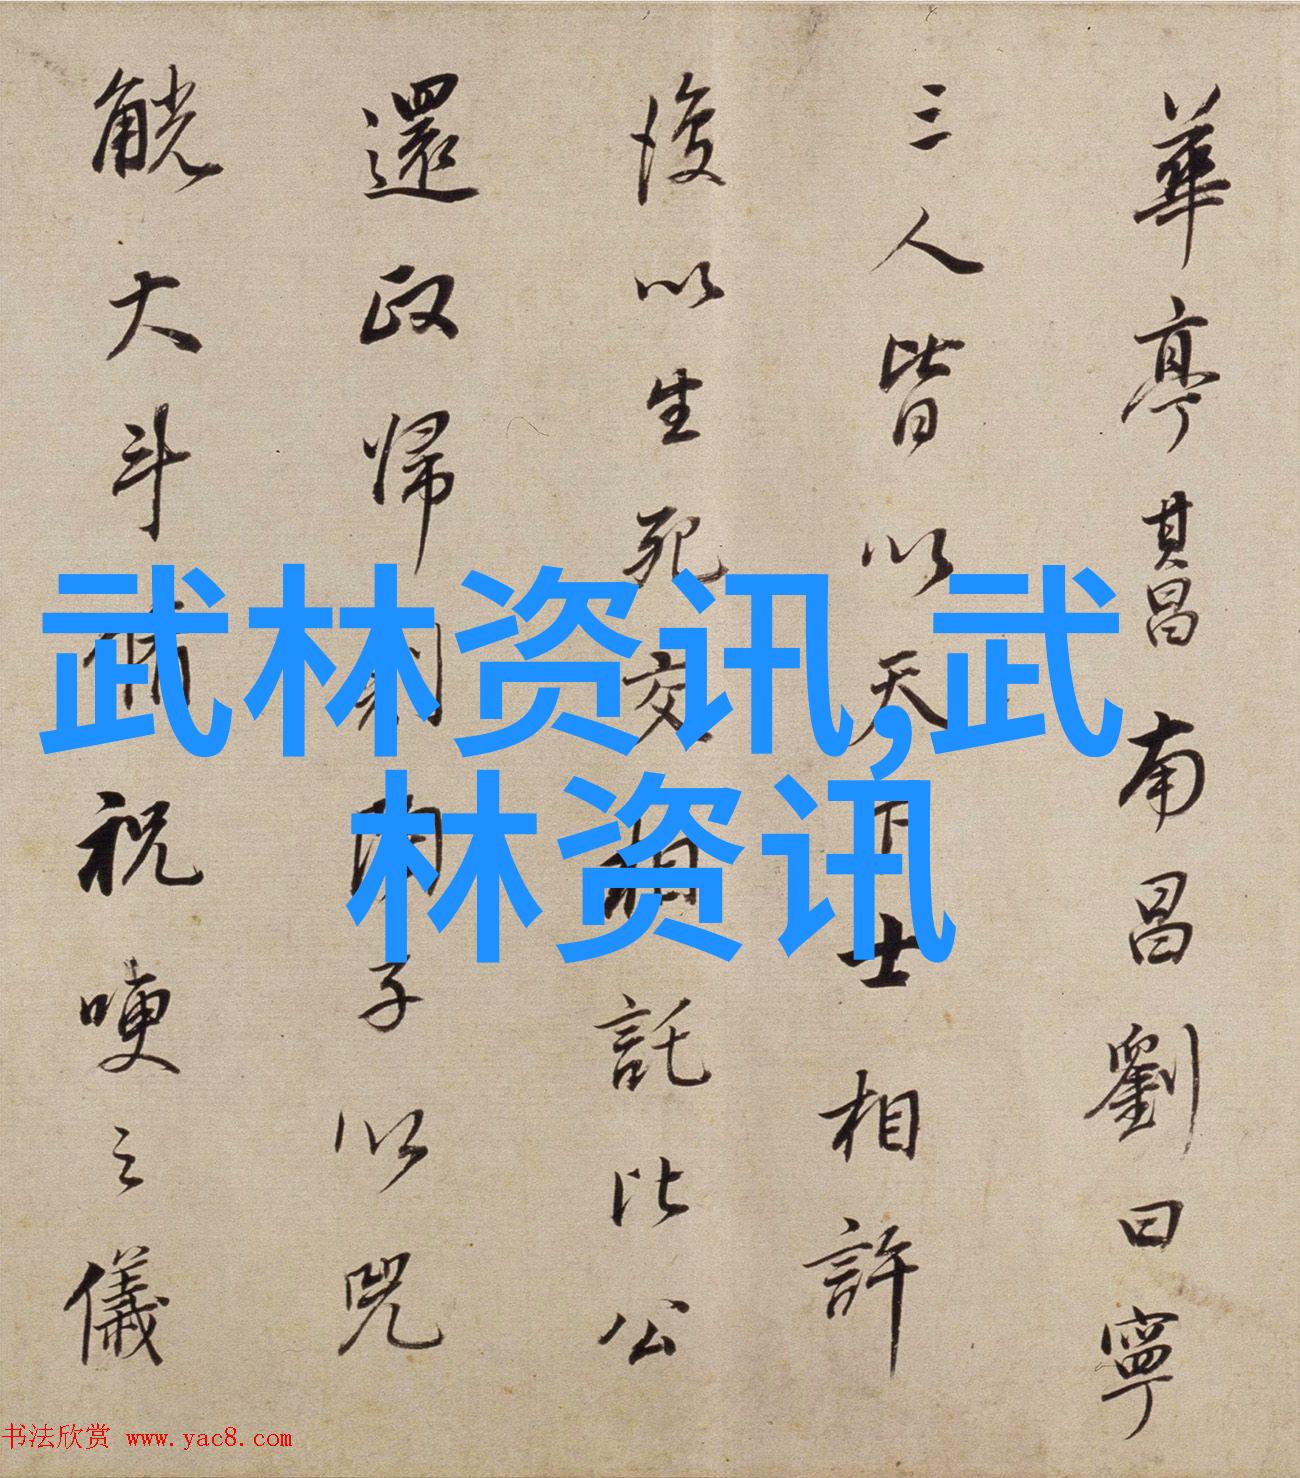 華亭其昌南昌劉曰寧
三人皆以天下士相許
後以生死交相託比公
還政歸劉同子以兕
觥大斗脩祝哽之儀
武林资讯,武
林资讯
书法欣赏 www.yac8.com